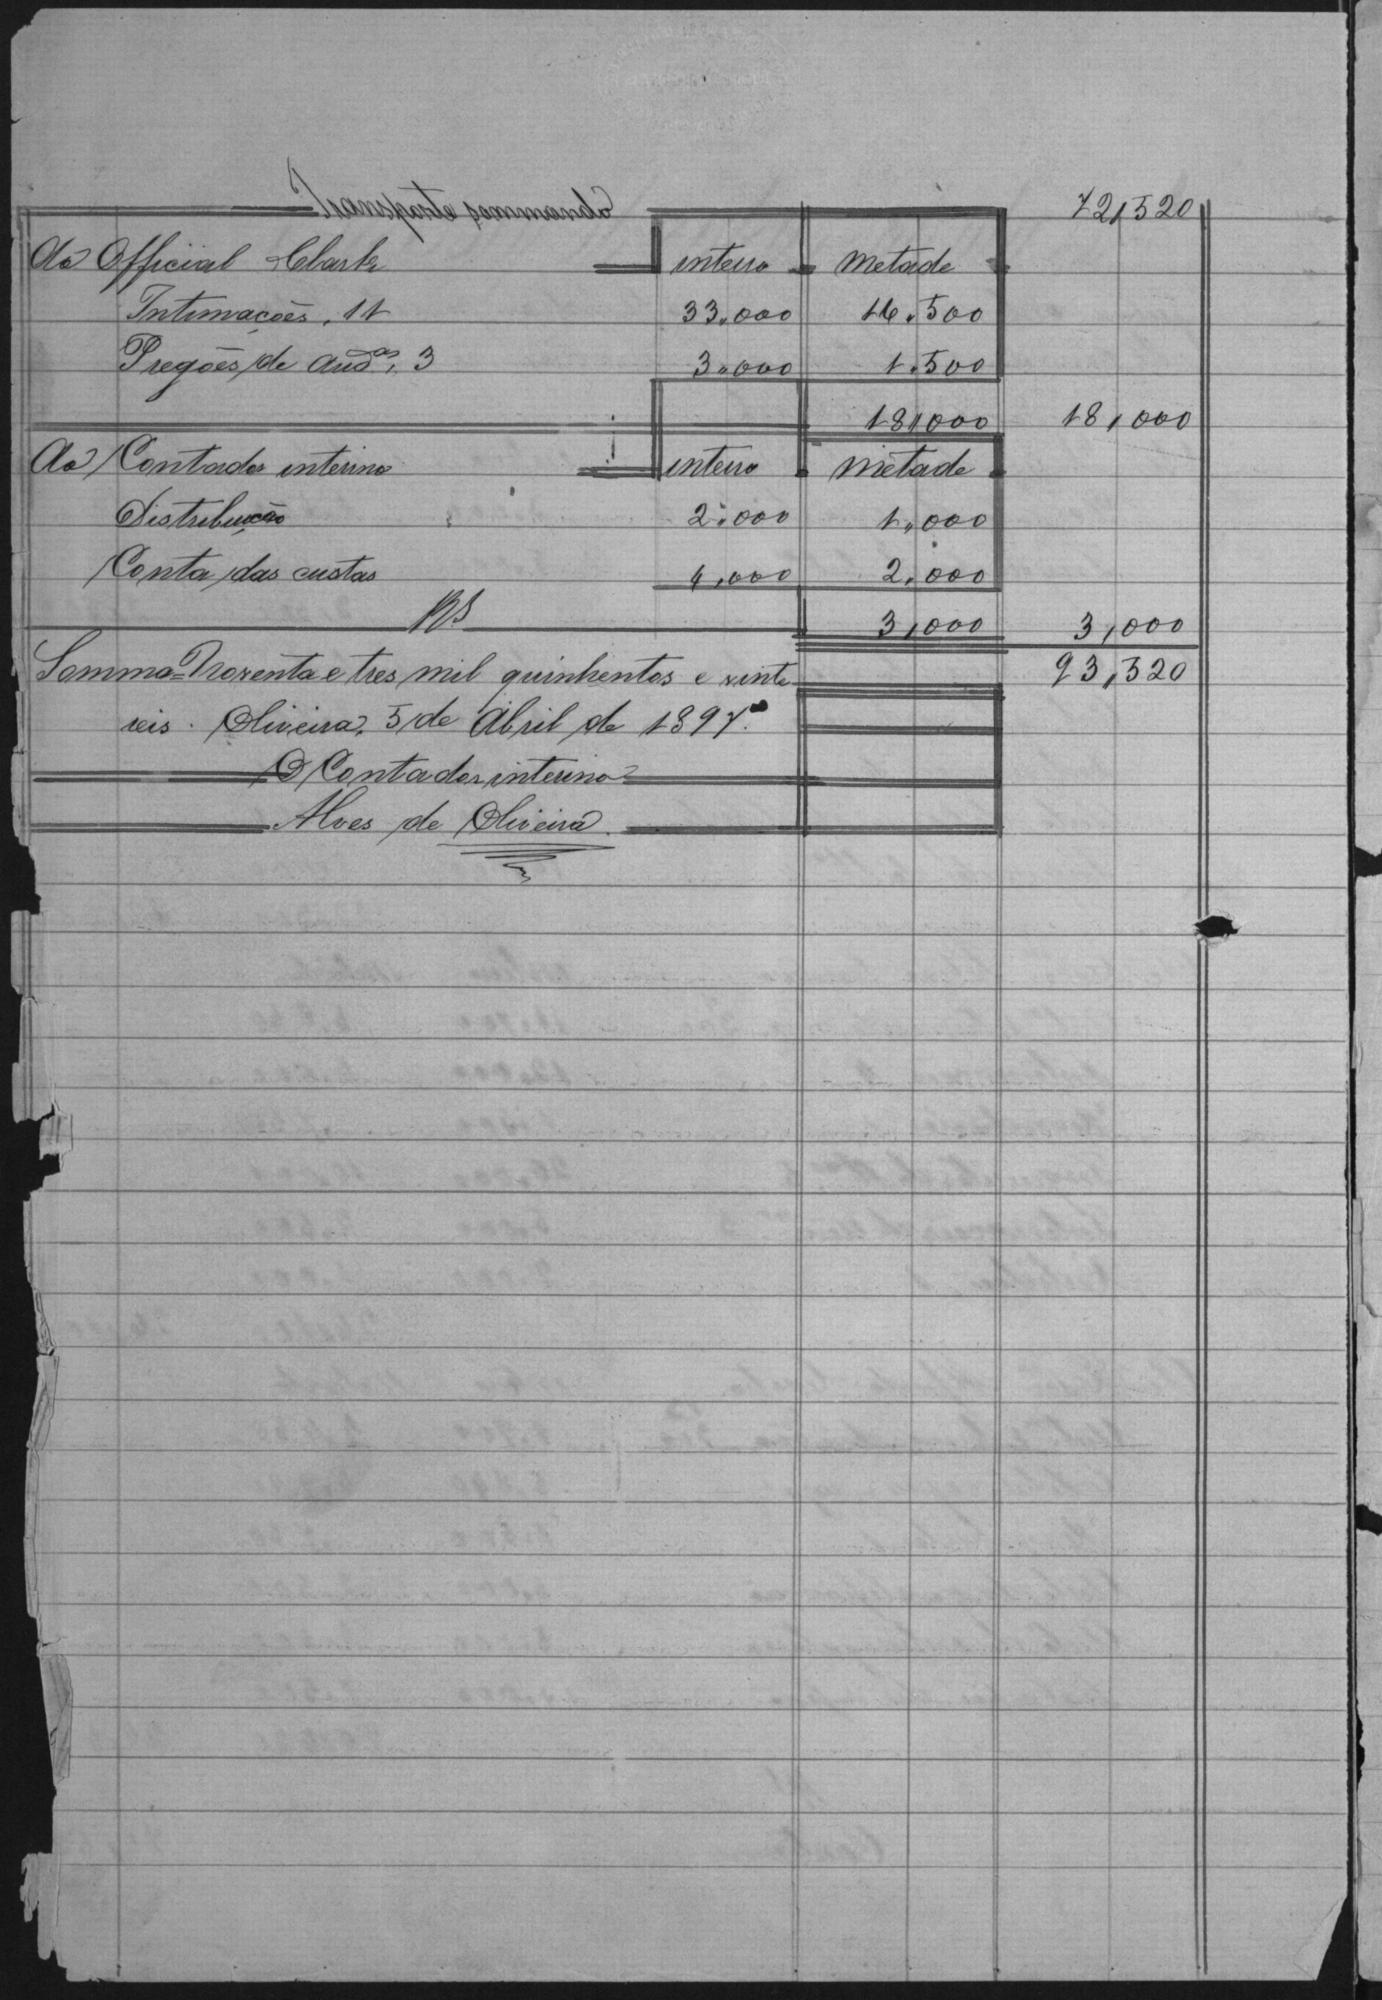 Transporte 72,520
Ao Official Clark inteiro metade
Intimações, 11 33.000 16.500
Pregões de audas, 3 3.000 1.500
18,000 18,000
Ao Contador interino inteiro metade
Distribuição 2.000 1.000
Conta das custas 4.000 2.000
RS 3,000 3,000
Somma=Noventa e tres mil quinhentos e vinte 93,520
reis. Oliveira, 5 de Abril de 1897.
O Contador interino
Alves de Oliveira.